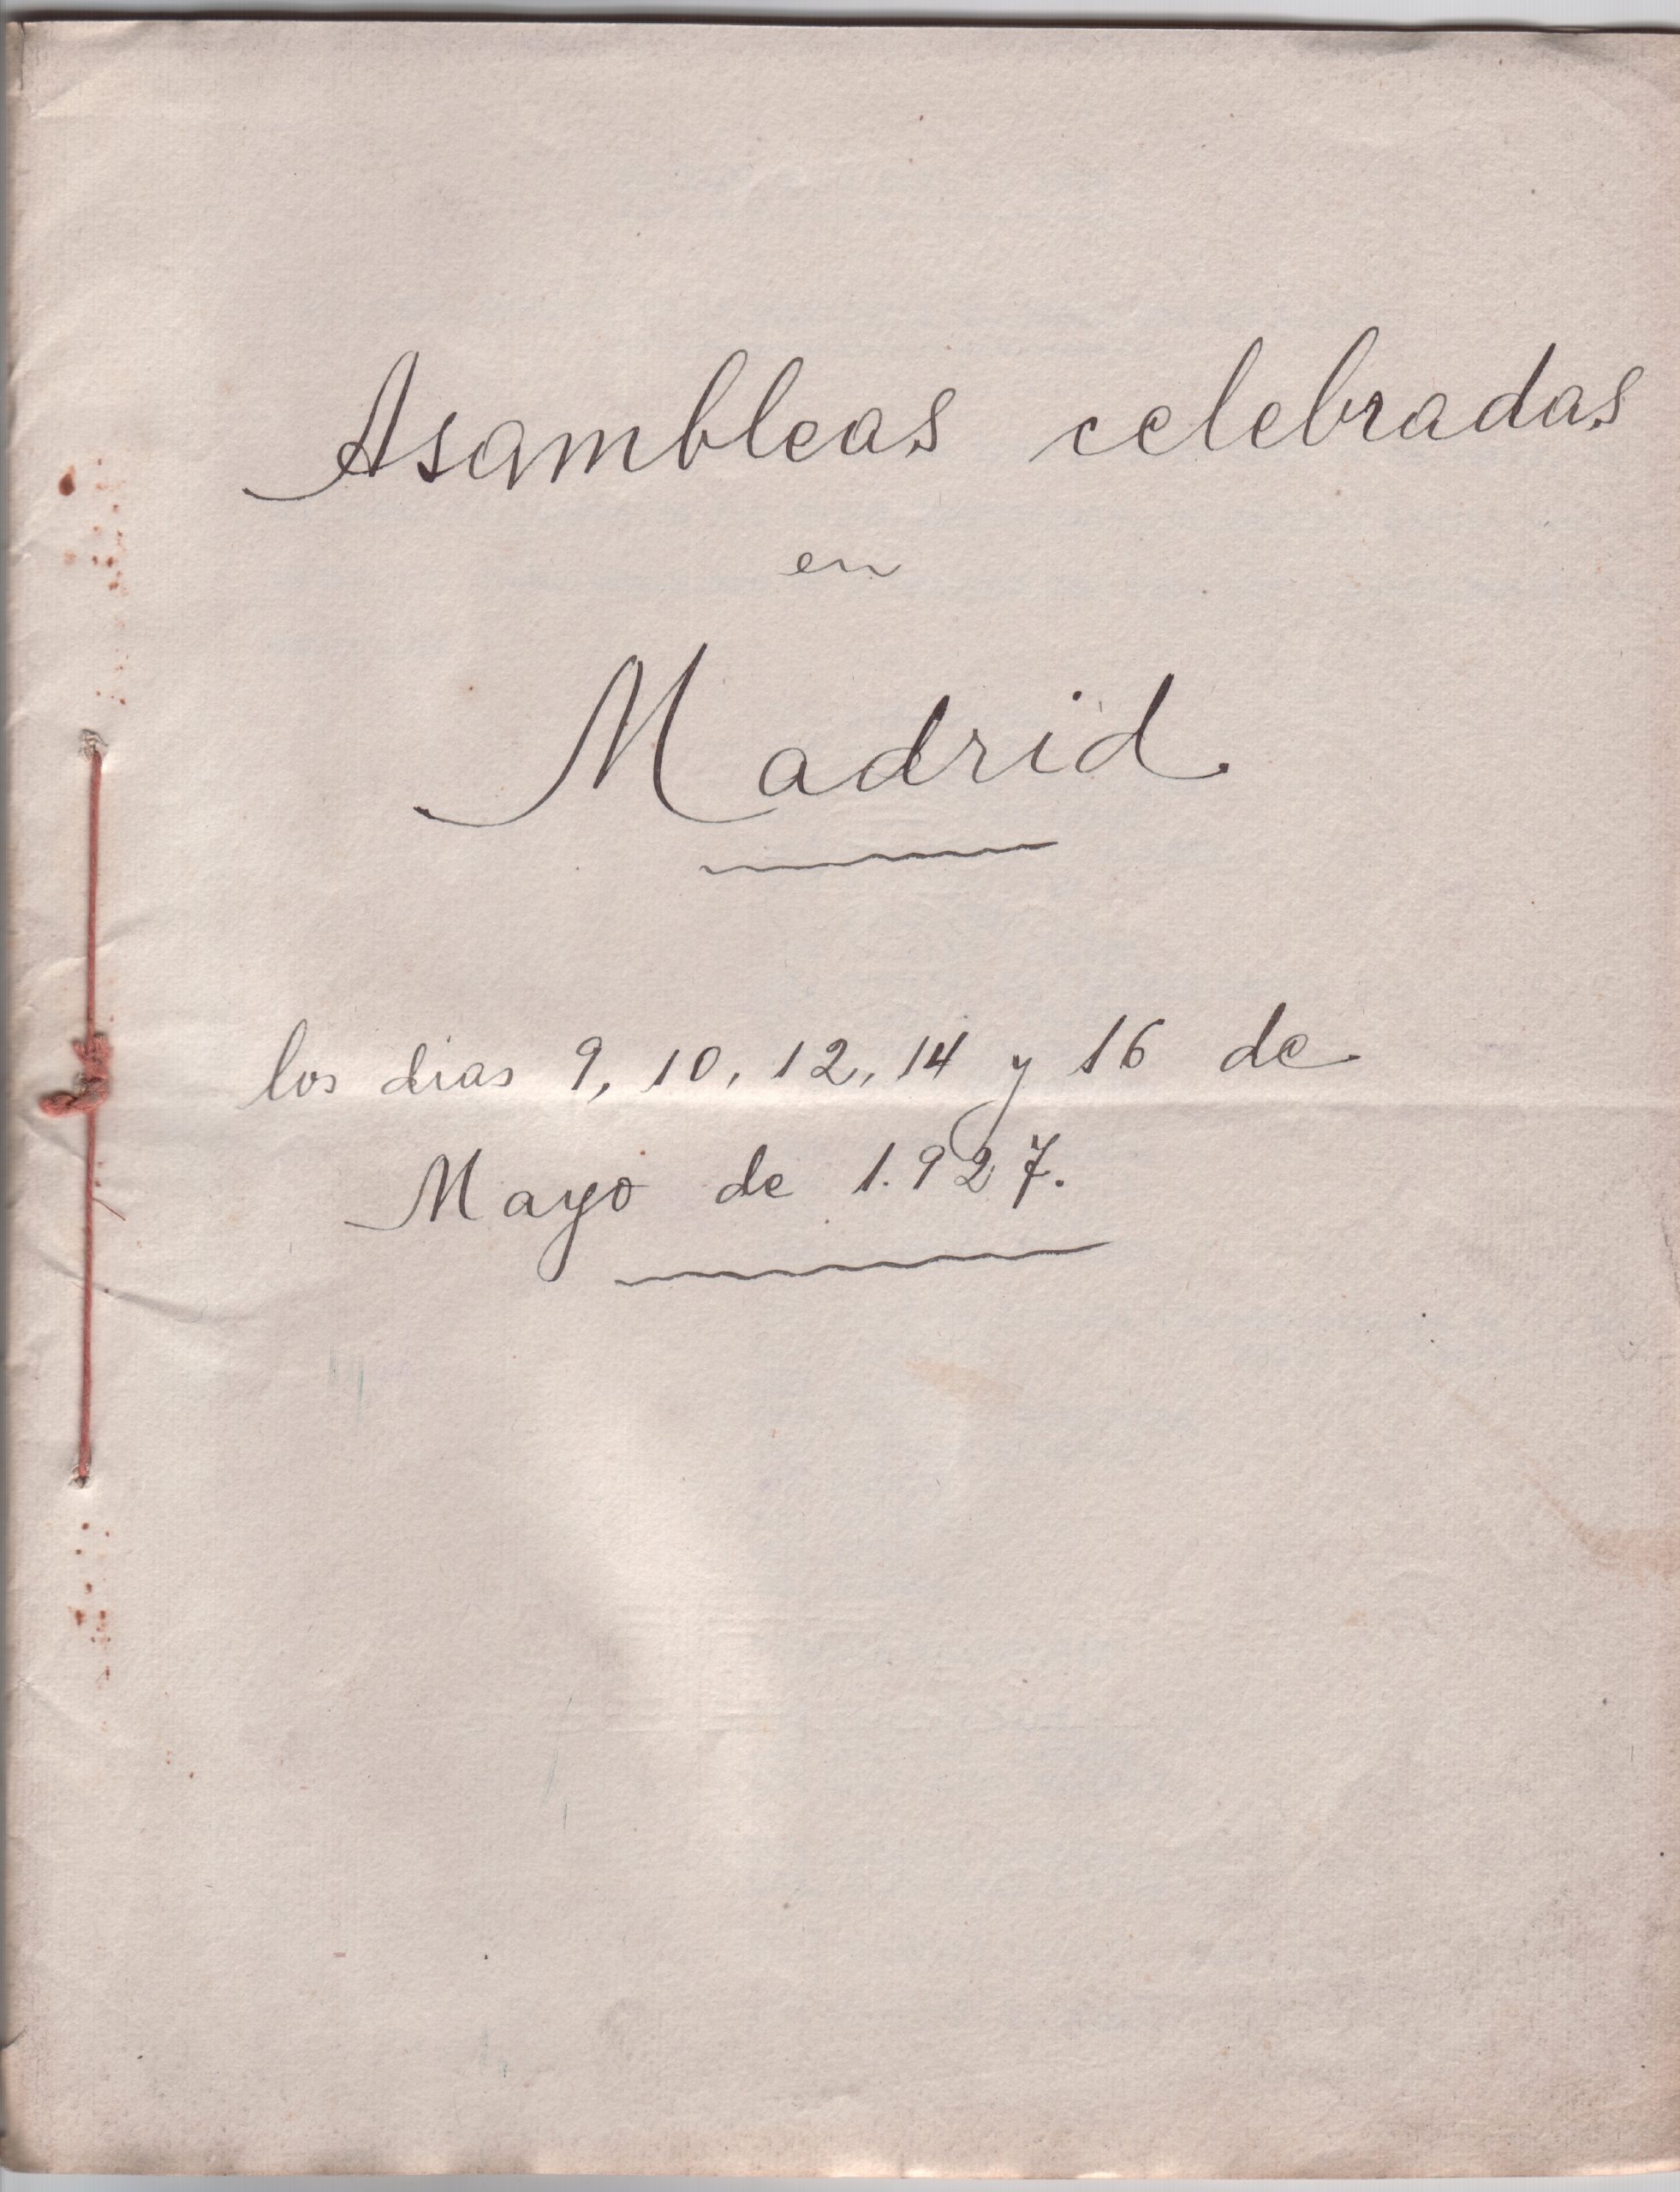 Asambleas celebradas
en
Madrid.
los dias 9, 10, 12, 14 y 16 de
Mayo de 1.927.